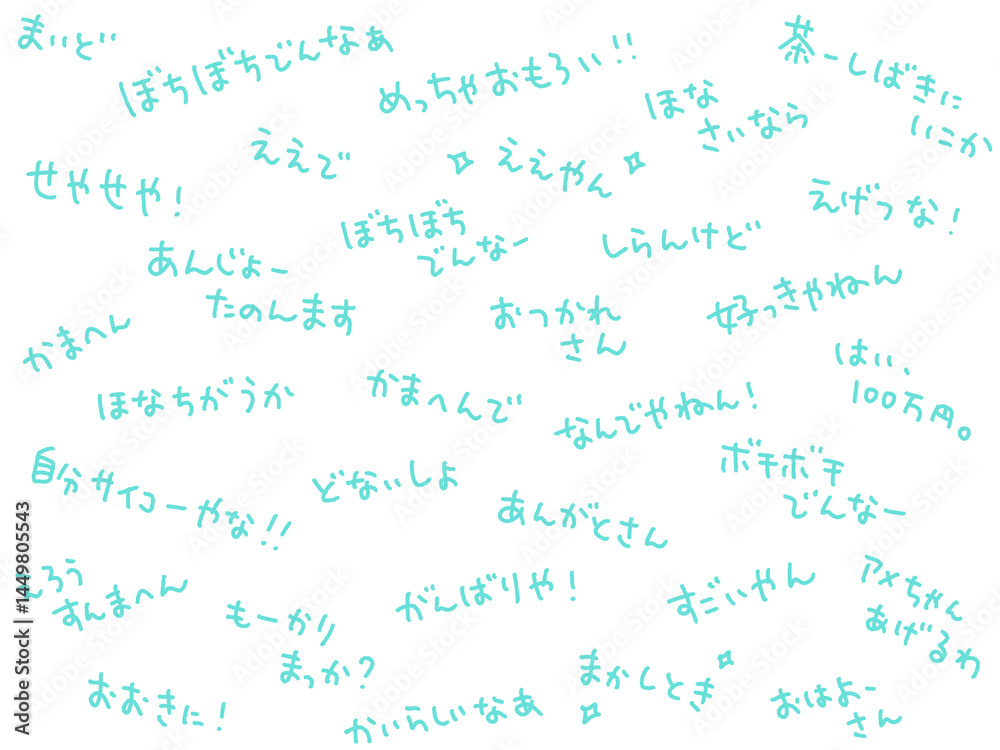 まいど
ぼちぼちでんなぁ
めっちゃおもろい!!
茶ーしばきに
いこか
ほな
さいなら
ええで
ええやん
せやせや!
えげつな!
ぼちぼち
でんなー
しらんけど
あんじょー
たのんます
おつかれ
さん
好っきやねん
かまへん
はい、
100万円。
ほなちがうか
かまへんで
なんでやねん!
ボチボチ
でんなー
自分サイコーやな!!
どないしよ
あんがとさん
しろう
すんまへん
がんばりや!
すごいやん
アメちゃん
あげるわ
もーかり
まっか?
まかしとき
おおきに!
かいらしいなぁ
おはよー
さん
Adobe Stock | #1449805543